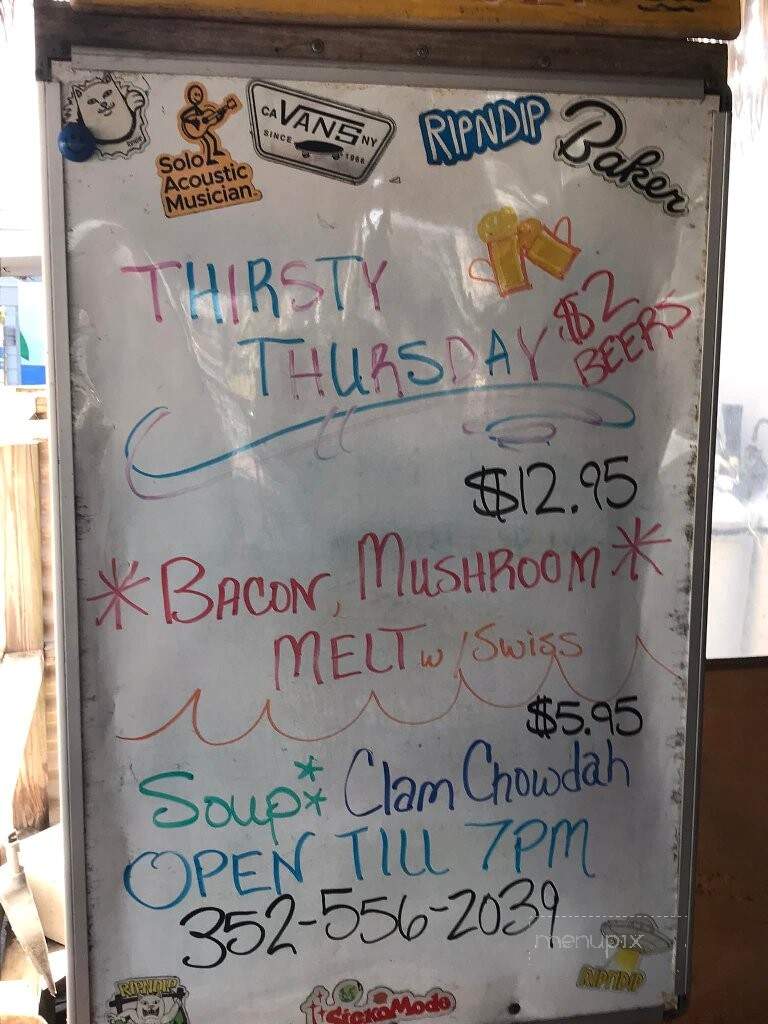 Solo
Acoustic
Musician
CA VANS NY
SINCE 1966
RIPNDIP
Baker
THIRSTY
THURSDAY
$2
BEERS
$12.95
*BACON, MUSHROOM*
MELT w/Swiss
$5.95
Soup** Clam Chowdah
OPEN TILL 7PM
352-556-2039
menupix
RIPNDIP
RIPNDIP
SickoMode